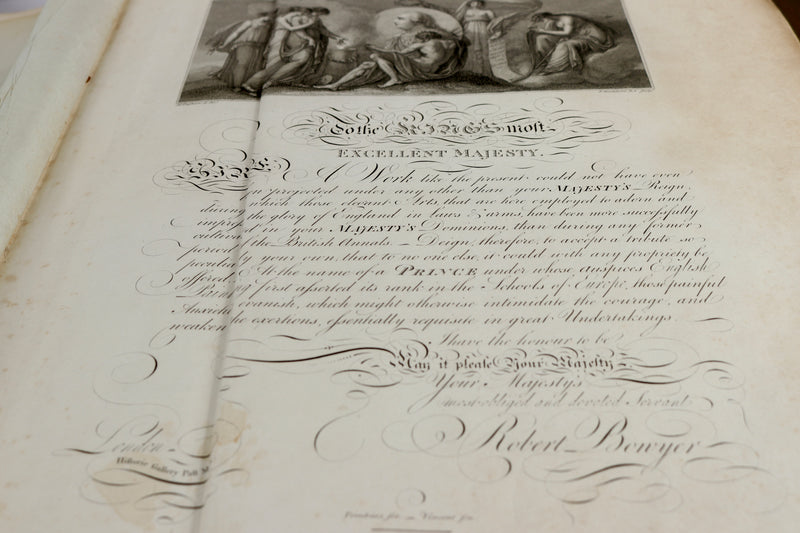 To the KING'S most
EXCELLENT MAJESTY.
SIRE
A Work like the present could not have even
projected under any other than your MAJESTY'S Reign,
during which those elegant Arts, that are here employed to adorn and
the glory of England in laws & arms, have been more successfully
in your MAJESTY'S Dominions, than during any former
period the British Annals — Deign, therefore, to accept a tribute so
your own, that to no one else, it could with any propriety be
offered At the name of a PRINCE under whose auspices English
first asserted its rank in the Schools of Europe, those painful
vanish, which might otherwise intimidate the courage, and
weaken exertions, essentially requisite in great Undertakings.
I have the honour to be
May it please Your Majesty
Your Majesty's
most obliged and devoted Servant
Robert Bowyer
London
Historic Gallery Pall